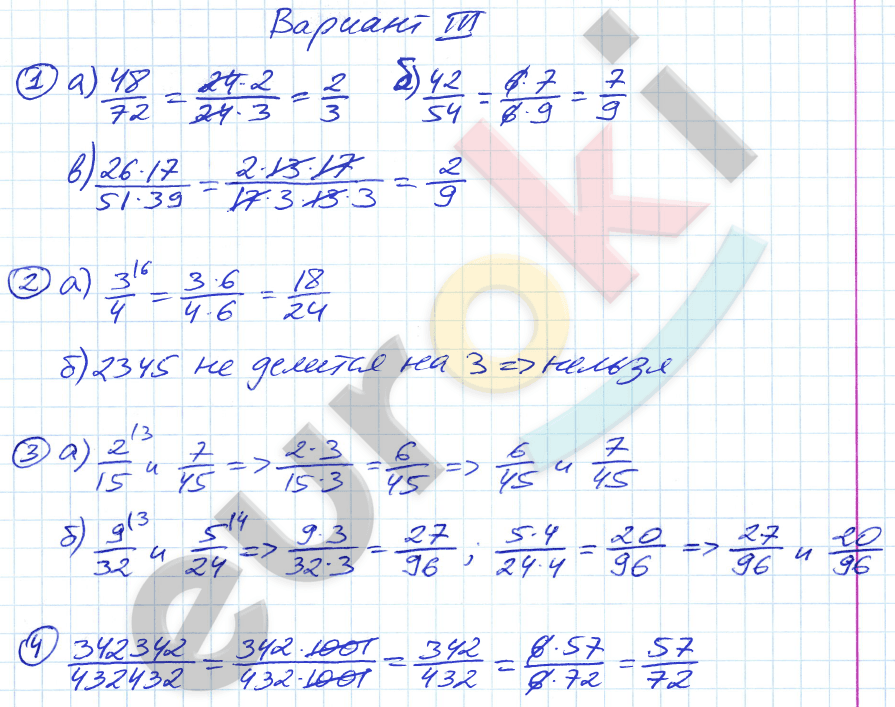 Вариант III
① а) 48/72 = 24·2/24·3 = 2/3 б) 42/54 = 6·7/6·9 = 7/9
в) 26·17/51·39 = 2·13·17/17·3·13·3 = 2/9
② а) 3/4 \6 = 3·6/4·6 = 18/24
б) 2345 не делится на 3 => нельзя
③ а) 2/15 \3 и 7/45 => 2·3/15·3 = 6/45 => 6/45 и 7/45
б) 9/32 \3 и 5/24 \4 => 9·3/32·3 = 27/96 ; 5·4/24·4 = 20/96 => 27/96 и 20/96
④ 342342/432432 = 342·1001/432·1001 = 342/432 = 6·57/6·72 = 57/72
euroki